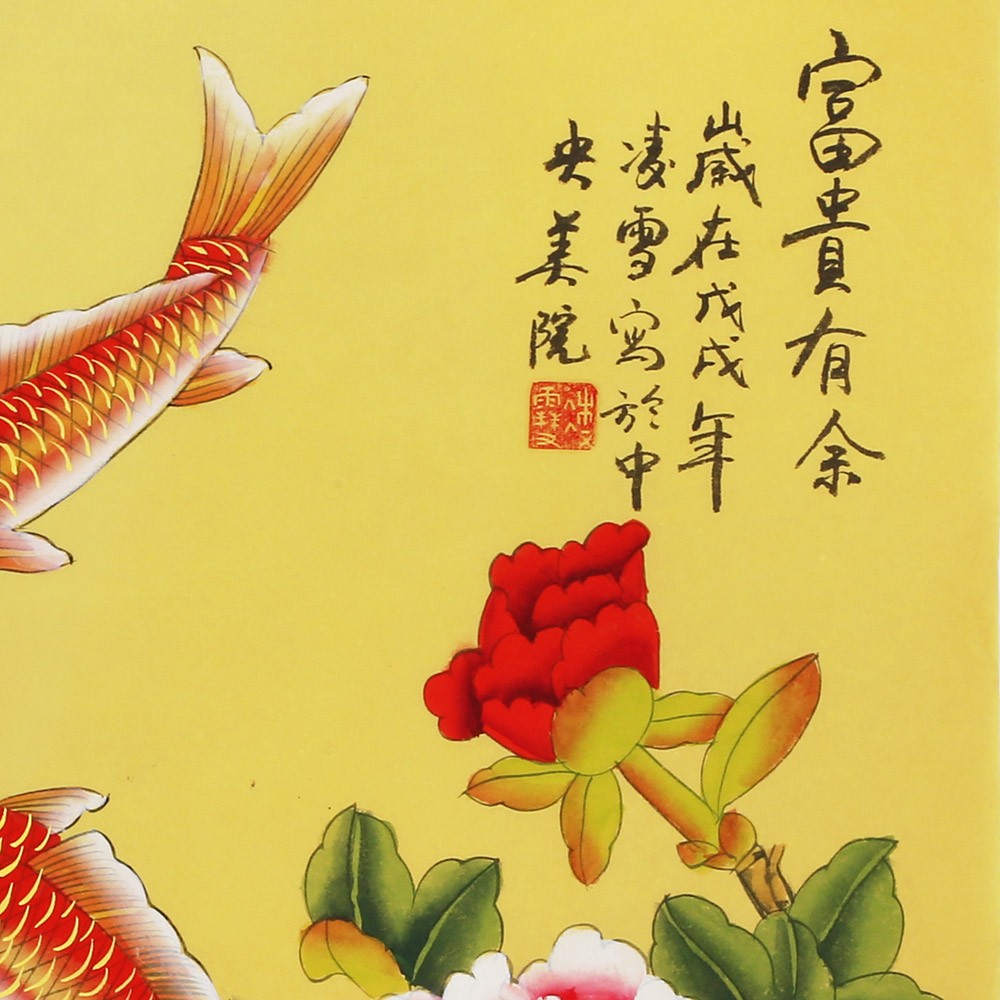 富貴有余
歲在戊戌年
凌雪寫於中
央美院